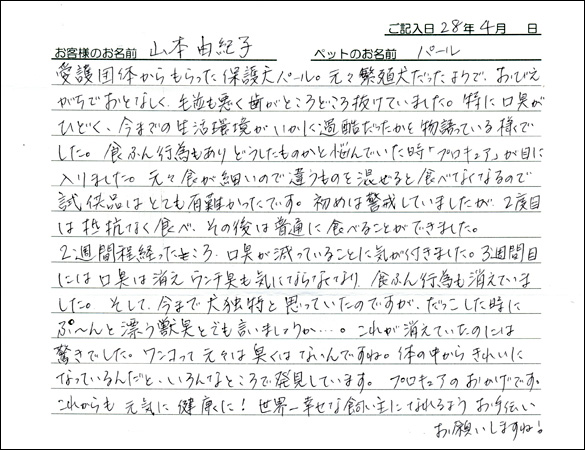 ご記入日 28年 4月 日
お客様のお名前 山本 由紀子 ペットのお名前 パール
愛護団体からもらった保護犬パール。元々繁殖犬だったようで、おびえ
がちでおとなしく、毛並も悪く歯がところどころ抜けていました。特に口臭が
ひどく、今までの生活環境がいかに過酷だったかを物語っている様で
した。食ふん行為もありどうしたものかと悩んでいた時「プロキュア」が目に
入りました。元々食が細いので違うものを混ぜると食べなくなるので
試供品はとても有難かったです。初めは警戒していましたが、2度目
は抵抗なく食べ、その後は普通に食べることができました。
2週間程経ったところ、口臭が減っていることに気が付きました。3週間目
には口臭は消え ウンチ臭も気にならなくなり、食ふん行為も消えていま
した。そして、今まで犬独特と思っていたのですが、だっこした時に
ぷ〜んと漂う獣臭とでも言いましょうか…。これが消えていたのには
驚きでした。ワンコって元々は臭くはないんですね。体の中からきれいに
なっているんだと、いろんなところで発見しています。プロキュアのおかげです。
これからも元気に健康に!世界一幸せな飼い主になれるようお手伝い
お願いしますね!